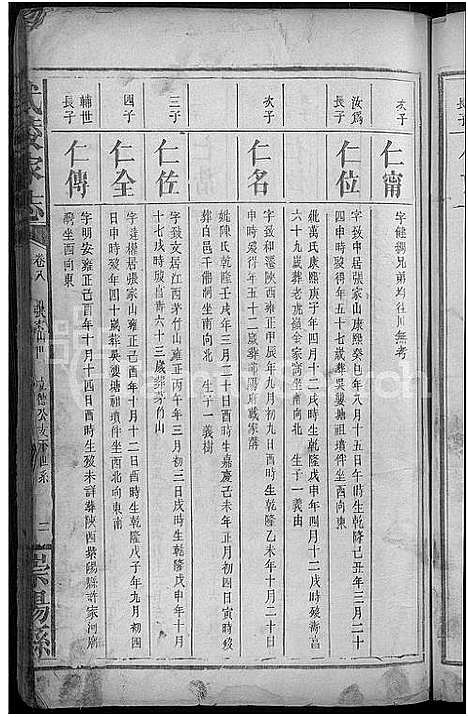 次子
仁甯
字能綱兄弟均往川無考
汝爲
長子
仁位
字致中居張家山康熙癸巳年八月十五日午時生乾隆己丑年三月二十
四申時歿得年五十七歲葬吳婆塘祖墳伴坐西向東
妣萬氏康熙庚子年四月十二戌時生乾隆戊申年四月十二戌時歿壽高
六十九歲葬老虎嶺金家窩坐南向北 生子一義由
次子
仁名
字致和遷陝西雍正甲辰年九月初九日酉時生乾隆乙未年十月二十日
申時歿得年五十二歲葬
妣陳氏乾隆壬戌年三月二十日酉時生嘉慶己未年正月初四日寅時歿
葬白邑千佛洞 生子一義樹
三子
仁佐
字致文居江西茅竹山雍正丙午年三月初三日戌時生乾隆戊申年十月
十七戌時歿高壽六十三歲葬茅竹山
四子
仁全
字達權居張家山雍正己酉年十月十二日酉時生乾隆戊子年九月初四
日申時歿年四十歲葬吳婆塘祖墳伴坐西北向東南
輔世
長子
仁傳
字明安雍正己酉年十月十四日酉時生歿未詳葬陝西紫陽縣許家河
坐西向東
家志
卷八
二
崇陽縣